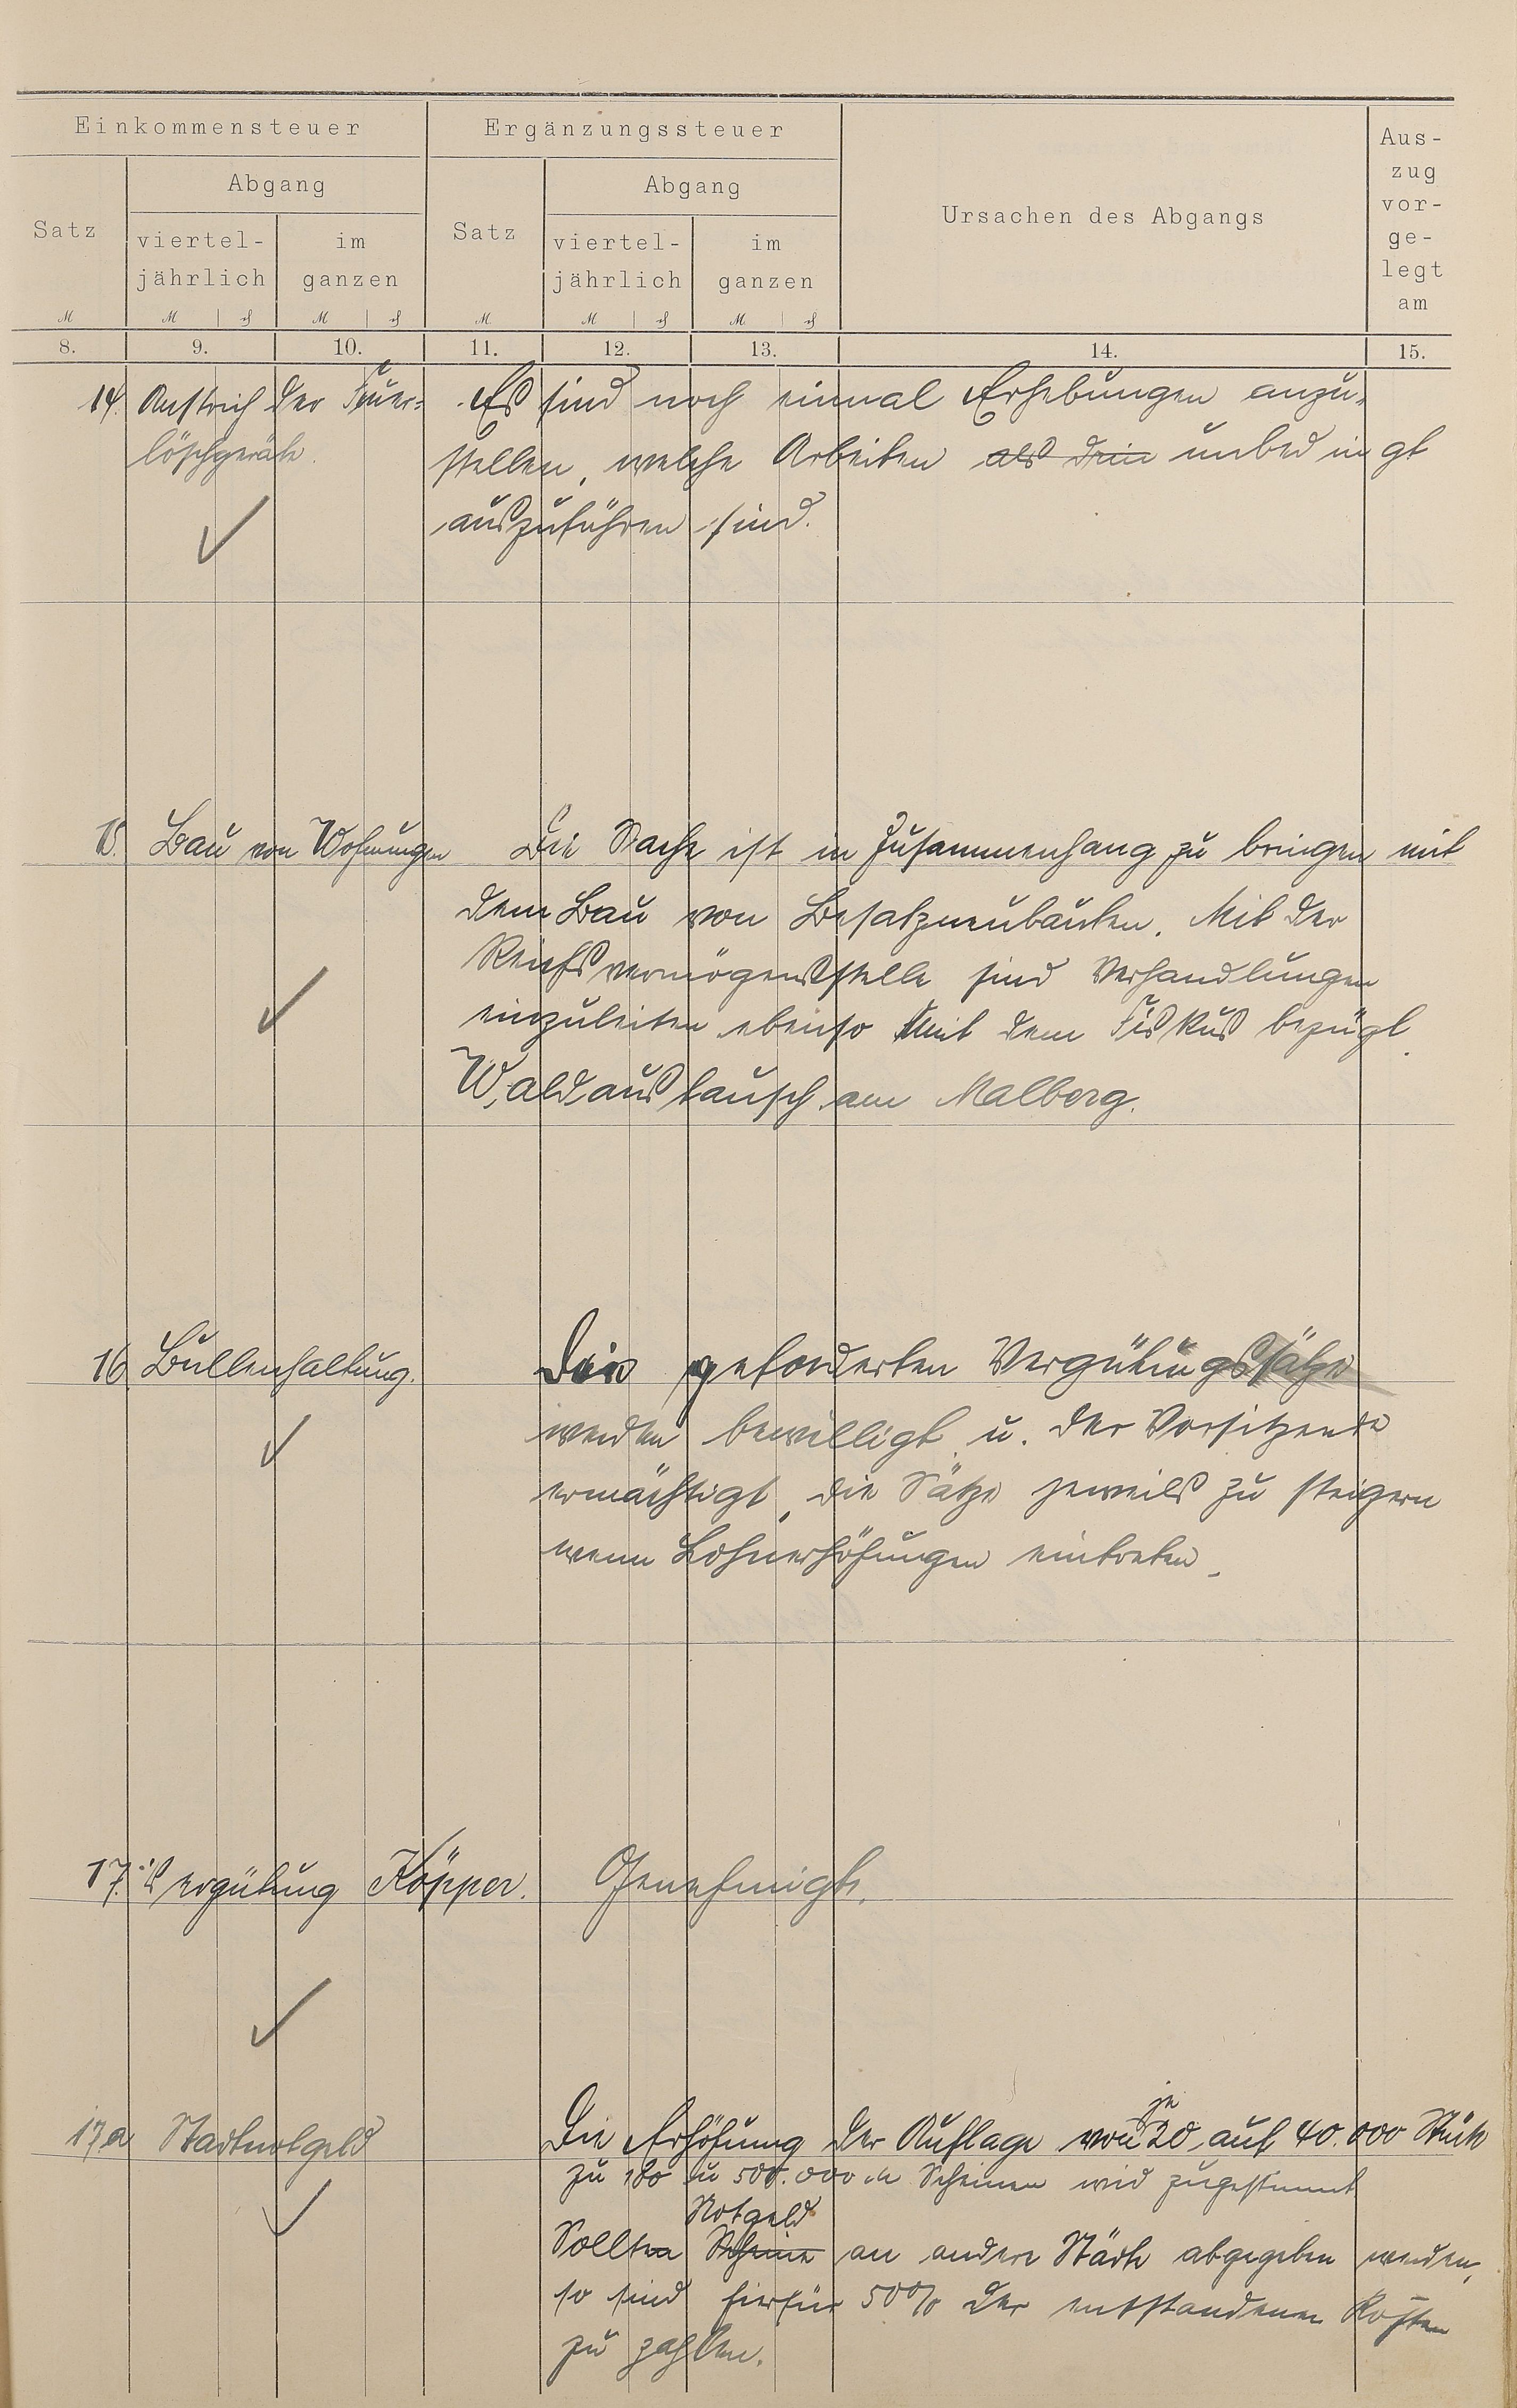 Einkommensteuer Ergänzungssteuer Ursachen des Abgangs Aus-
zug
vor-
ge-
legt
am
Satz Abgang Satz Abgang
viertel-
jährlich im
ganzen viertel-
jährlich im
ganzen
M M ₰ M ₰ M M ₰ M ₰
8. 9. 10. 11. 12. 13. 14. 15.
14. Anstrich der Feuer-
löschgeräte.
Es sind noch einmal Erhebungen anzu-
stellen, welche Arbeiten unbedingt
auszuführen sind.
15. Bau von Wohnungen
Die Sache ist in Zusammenhang zu bringen mit
dem Bau von Besatzneubauten. Mit der
Reichsvermögensstelle sind Verhandlungen
einzuleiten ebenso mit dem Fiskus bezügl.
Waldaustausch am Malberg.
16. Bullenhaltung.
Die geforderten Vergütungssätze
werden bewilligt u. der Vorsitzende
ermächtigt, die Sätze jeweils zu steigern
wenn Lohnerhöhungen eintreten.
17. Vergütung Köpper. Genehmigt.
17a Stadtnotgeld
Die Erhöhung der Auflage von je 20 auf 40.000 Stück
zu 100 u 500.000 M Scheinen wird zugestimmt
Notgeld
Sollten Scheine an andere Städte abgegeben werden,
so sind hierfür 50% der entstandenen Kosten
zu zahlen.